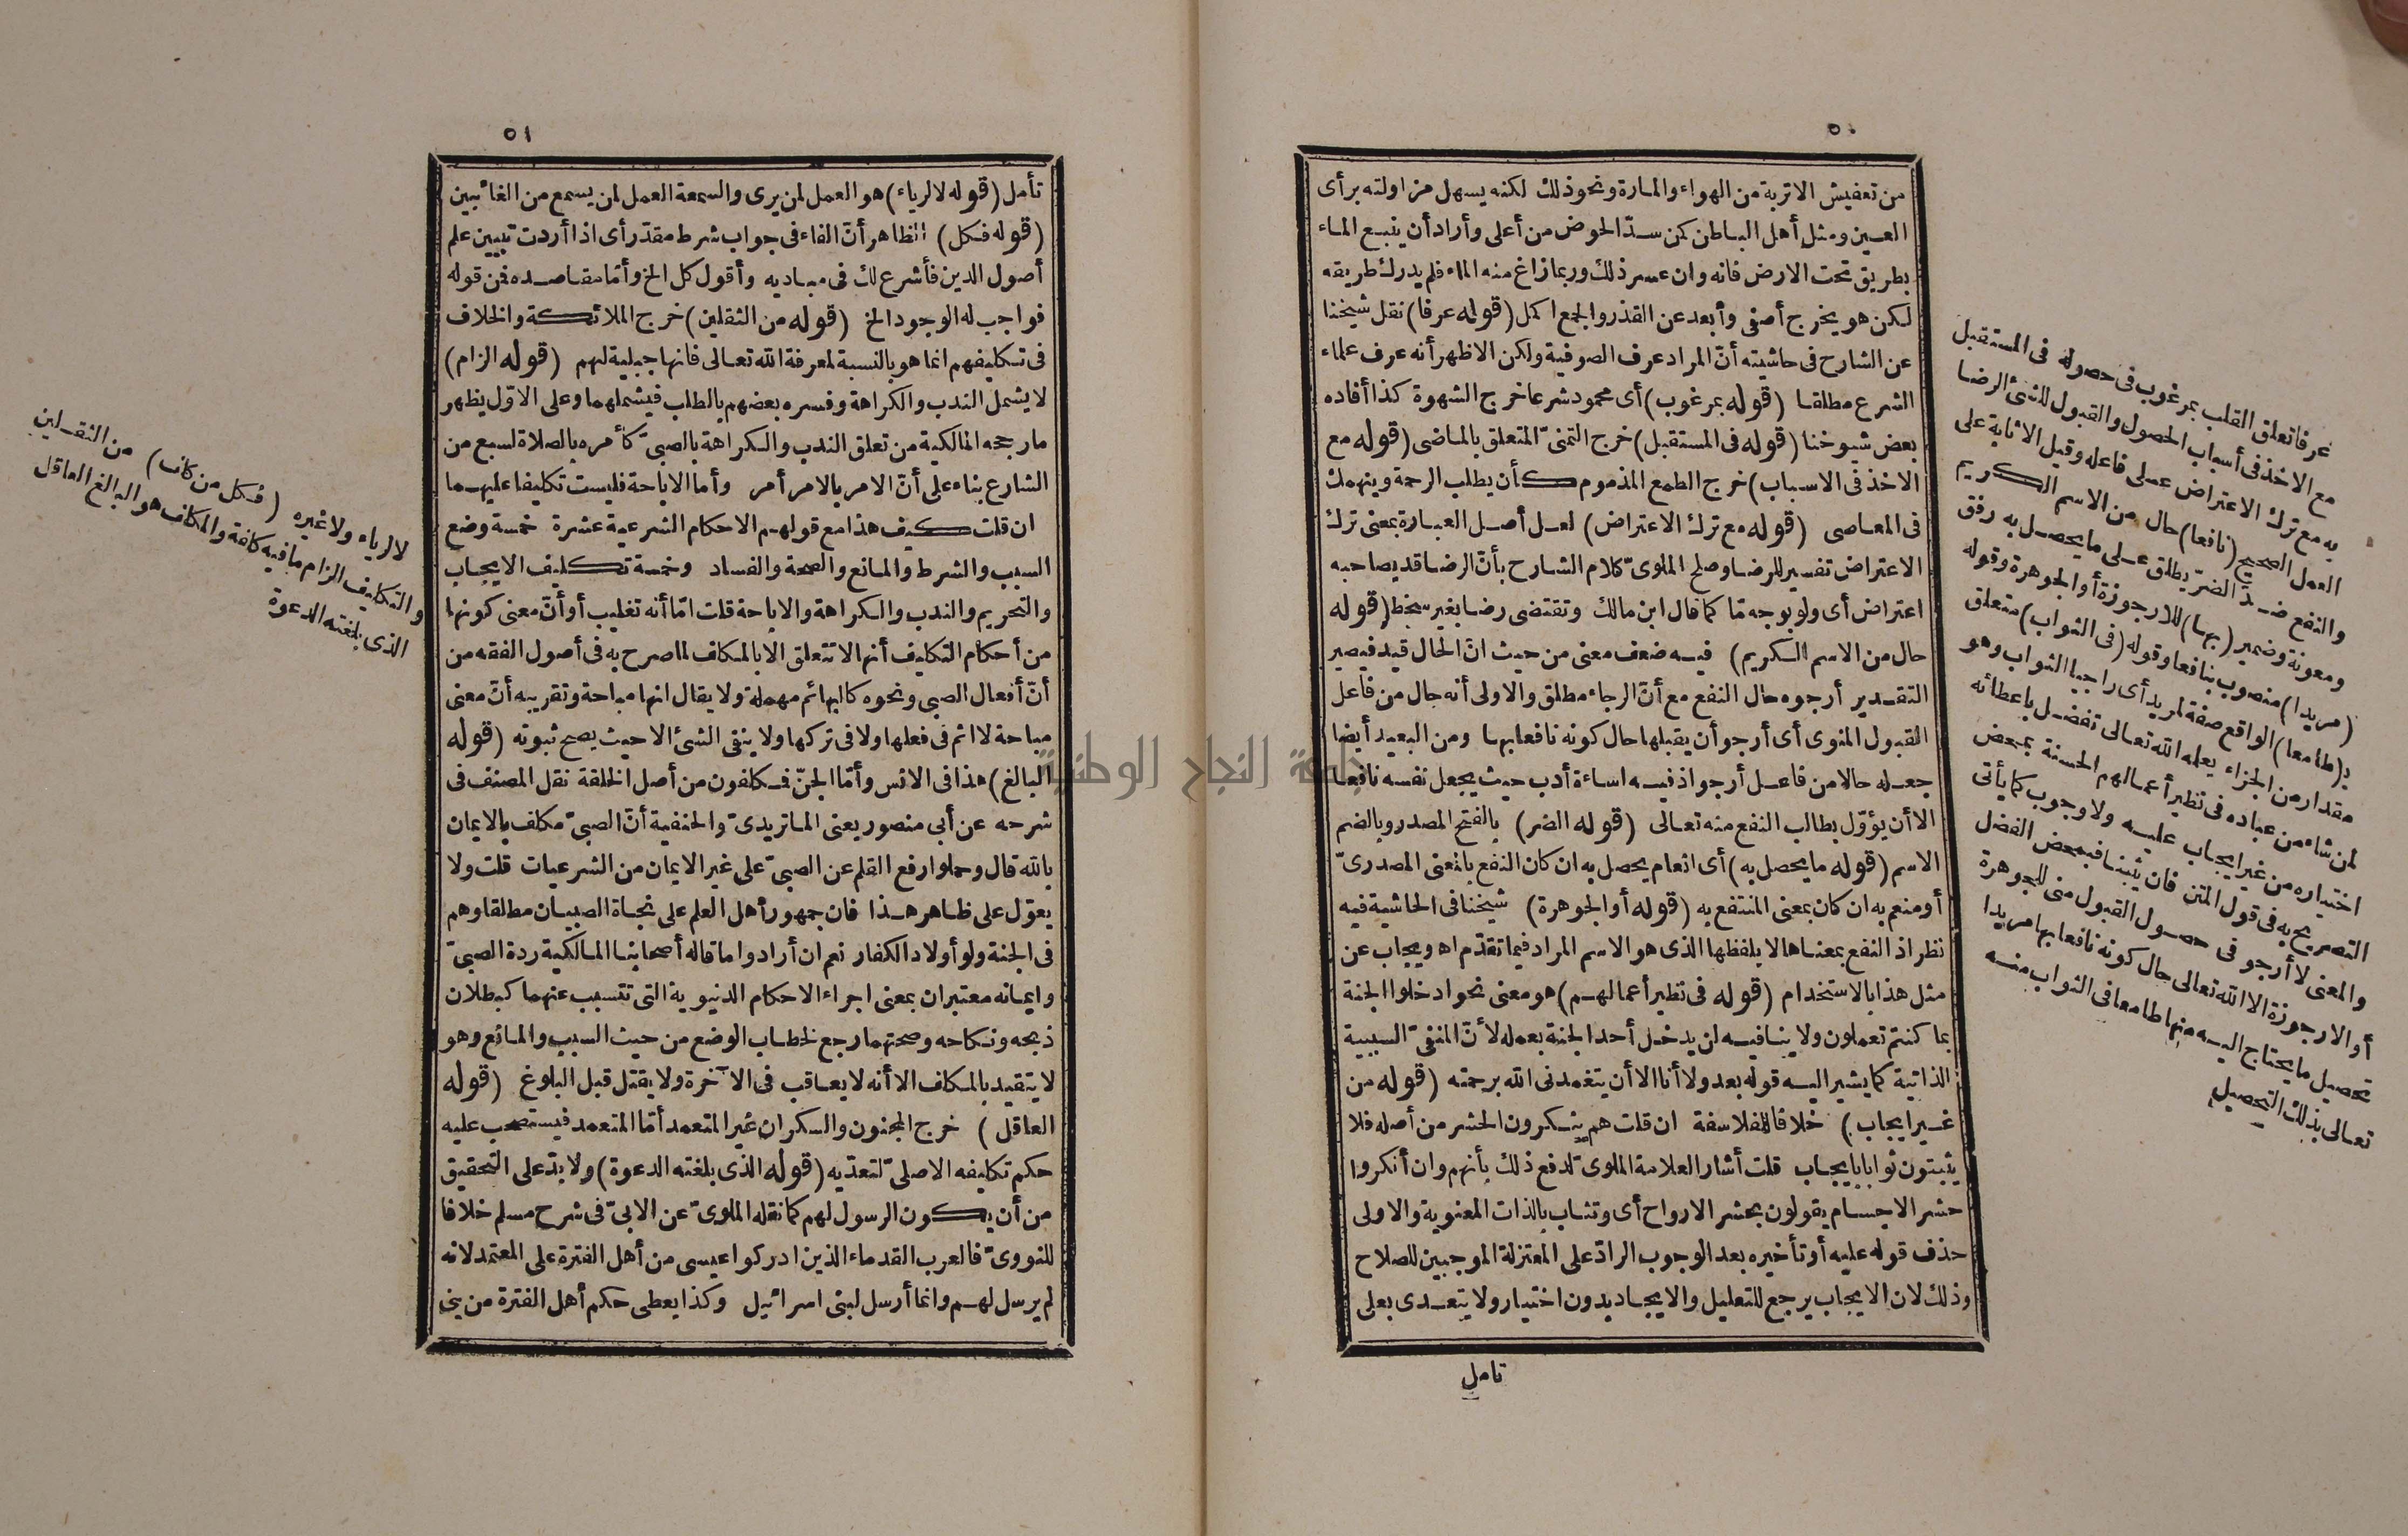 ٥٠
من تعفيش الاتربة من الهواء والمارة ونحو ذلك لكنه يسهل مزاولته برأى
العين ومثل أهل الباطن كمن سدّ الحوض من أعلى وأراد أن ينبع الماء
بطريق تحت الارض فانه وان عسر ذلك وربما زاغ منه الماء فلم يدرك طريقه
لكن هو يخرج أصفى وأبعد عن القذر والجمع اكمل (قوله عرفا) نقل شيخنا
عن الشارح فى حاشيته أنّ المراد عرف الصوفية ولكن الاظهر أنه عرف علماء
الشرع مطلقا (قوله بمرغوب) أى محمود شرعا خرج الشهوة كذا أفاده
بعض شيوخنا (قوله فى المستقبل) خرج التمنىّ المتعلق بالماضى (قوله مع
الاخذ فى الاسباب) خرج الطمع المذموم كأن يطلب الرحمة وينهمك
فى المعاصى (قوله مع ترك الاعتراض) لعل أصل العبارة بمعنى ترك
الاعتراض تفسير للرضا وصلح الملوىّ كلام الشارح بأنّ الرضا قد يصاحبه
اعتراض أى ولو بوجه مّا كما قال ابن مالك وتقتضى رضا بغير سخط (قوله
حال من الاسم الكريم) فيه ضعف معنى من حيث انّ الحال قيد فيصير
التقدير أرجوه حال النفع مع أنّ الرجاء مطلق والاولى أنه حال من فاعل
القبول المنوى أى أرجو أن يقبلها حال كونه نافعا بها ومن البعيد أيضا
جعله حالا من فاعل أرجو اذ فيه اساءة أدب حيث يجعل نفسه نافعا
الا أن يؤوّل بطالب النفع منه تعالى (قوله الضر) بالفتح المصدر وبالضم
الاسم (قوله ما يحصل به) أى انعام يحصل به ان كان النفع بالمعنى المصدرىّ
أو منعم به ان كان بمعنى المنتفع به (قوله أو الجوهرة) شيخنا فى الحاشية فيه
نظر اذ النفع بمعناها لا بلفظها الذى هو الاسم المراد فيما تقدّم اه ويجاب عن
مثل هذا بالاستخدام (قوله فى نظير أعمالهم) هو معنى نحو ادخلوا الجنة
بما كنتم تعملون ولا ينافيه لن يدخل أحد الجنة بعمله لأنّ المنفىّ السببية
الذاتية كما يشير اليه قوله بعد ولا أنا الا أن يتغمدنى الله برحمته (قوله من
غير ايجاب) خلافا للفلاسفة ان قلت هم ينكرون الحشر من أصله فلا
يثبتون ثوابا بايجاب قلت أشار العلامة الملوىّ لدفع ذلك بأنهم وان أنكروا
حشر الاجسام يقولون بحشر الارواح أى وتثاب باللذات المعنوية والاولى
حذف قوله عليه أو تأخيره بعد الوجوب الرادّ على المعتزلة الموجبين للصلاح
وذلك لان الايجاب يرجع للتعليل والايجاد بدون اختيار ولا يتعدى بعلى
تامل
عرفا تعلق القلب بمرغوب فى حصوله فى المستقبل
مع الاخذ فى أسباب الحصول والقبول للشئ الرضا
به مع ترك الاعتراض على فاعله وقيل الاثابة على
العمل الصحيح (نافعا) حال من الاسم الكريم
والنفع ضدّ الضرّ يطلق على ما يحصل به رفق
ومعونة وضمير (بها) للارجوزة أو الجوهرة وقوله
(مريدا) منصوب بنافعا وقوله (فى الثواب) متعلق
بـ(طامعا) الواقع صفة لمريد أى راجيا الثواب وهو
مقدار من الجزاء يعلمه الله تعالى تفضل باعطائه
لمن شاء من عباده فى نظير أعمالهم الحسنة بمحض
اختياره من غير ايجاب عليه ولا وجوب كما يأتى
التصريح به فى قول المتن فان يثبنا فبمحض الفضل
والمعنى لا أرجو فى حصول القبول منى للجوهرة
أو الارجوزة الا الله تعالى حال كونه نافعا بها مريدا
تحصيل ما يحتاج اليه منها طامعا فى الثواب منه
تعالى بذلك التحصيل
٥١
تأمل (قوله لا لرياء) هو العمل لمن يرى والسمعة العمل لمن يسمع من الغائبين
(قوله فكل) الظاهر أنّ الفاء فى جواب شرط مقدّر أى اذا أردت تبيين علم
أصول الدين فأشرع لك فى مباديه وأقول كل الخ وأمّا مقاصده فمن قوله
فواجب له الوجود الخ (قوله من الثقلين) خرج الملائكة والخلاف
فى تكليفهم انما هو بالنسبة لمعرفة الله تعالى فانها جبلية لهم (قوله الزام)
لا يشمل الندب والكراهة وفسره بعضهم بالطلب فيشملهما وعلى الاوّل يظهر
ما رجحه المالكية من تعلق الندب والكراهة بالصبىّ كأمره بالصلاة لسبع من
الشارع بناء على أنّ الامر بالامر أمر وأما الاباحة فليست تكليفا عليهما
ان قلت كيف هذا مع قولهم الاحكام الشرعية عشرة خمسة وضع
السبب والشرط والمانع والصحة والفساد وخمسة تكليف الايجاب
والتحريم والندب والكراهة والاباحة قلت امّا أنه تغليب أو أنّ معنى كونها
من أحكام التكليف أنها لا تتعلق الا بالمكلف لما صرح به فى أصول الفقه من
أنّ أفعال الصبى ونحوه كالبهائم مهملة ولا يقال انها مباحة وتقريبه أنّ معنى
مباحة لا اثم فى فعلها ولا فى تركها ولا ينفى الشئ الا حيث يصح ثبوته (قوله
البالغ) هذا فى الانس وأمّا الجنّ فمكلفون من أصل الخلقة نقل المصنف فى
شرحه عن أبى منصور يعنى الماتريدىّ والحنفية أنّ الصبىّ مكلف بالايمان
بالله قال وحملوا رفع القلم عن الصبىّ على غير الايمان من الشرعيات قلت ولا
يعوّل على ظاهر هذا فان جمهور أهل العلم على نجاة الصبيان مطلقا وهم
فى الجنة ولو أولاد الكفار نعم ان أرادوا ما قاله أصحابنا المالكية ردة الصبىّ
وايمانه معتبران بمعنى اجراء الاحكام الدنيوية التى تتسبب عنهما كبطلان
ذبحه ونكاحه وصحتهما رجع لخطاب الوضع من حيث السبب والمانع وهو
لا يتقيد بالمكلف الا أنه لا يعاقب فى الآخرة ولا يقتل قبل البلوغ (قوله
العاقل) خرج المجنون والسكران غير المتعمد أمّا المتعمد فيستصحب عليه
حكم تكليفه الاصلىّ لتعدّيه (قوله الذى بلغته الدعوة) ولا بدّ على التحقيق
من أن يكون الرسول لهم كما نقله الملوىّ عن الابىّ فى شرح مسلم خلافا
للنووىّ فالعرب القدماء الذين ادركوا عيسى من أهل الفترة على المعتمد لانه
لم يرسل لهم وانما أرسل لبنى اسرائيل وكذا يعطى حكم أهل الفترة من بنى
لا لرياء ولا غيره (فكل من كلف) من الثقلين
والتكليف الزام ما فيه كلفة والمكلف هو البالغ العاقل
الذى بلغته الدعوة
جامعة النجاح الوطنية